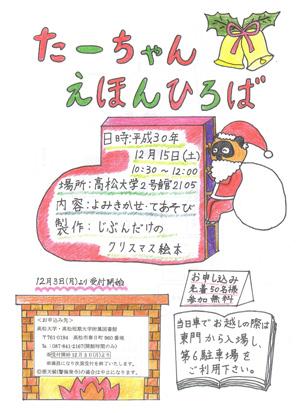 たーちゃん
えほんひろば
日時:平成30年
12月15日(土)
10:30～12:00
場所:高松大学2号館2105
内容:よみきかせ・てあそび
製作:じぶんだけの
クリスマス絵本
12月3日(月)より受付開始
<お申込み先>
高松大学・高松短期大学附属図書館
〒761-0194 高松市春日町960番地
℡:087-841-2167(開館時間のみ)
※受付開始12月3日(月)より
※満員になり次第受付を終了いたします。
お申し込み
先着50名様
参加無料
当日車でお越しの際は
東門から入場し、
第6駐車場を
ご利用下さい。